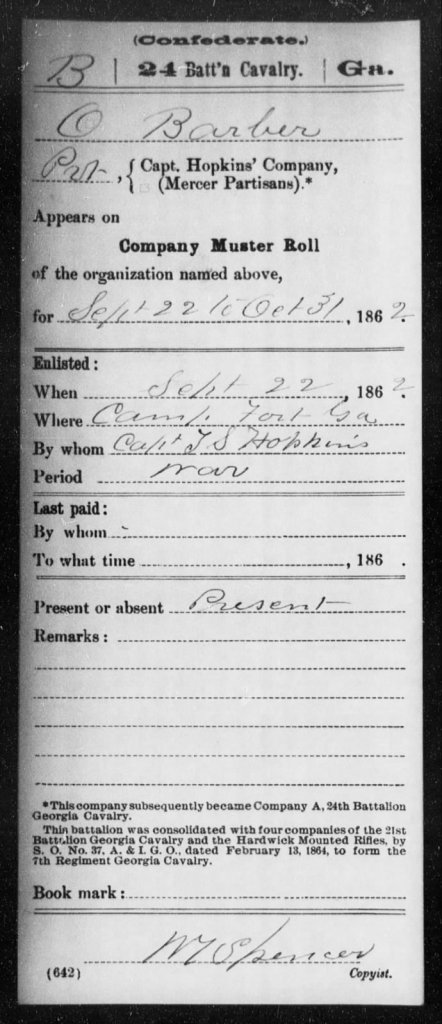 (Confederate.)
B | 24 Batt'n Cavalry. | Ga.
O Barber
Pvt, { Capt. Hopkins' Company,
(Mercer Partisans).*
Appears on
Company Muster Roll
of the organization named above,
for Sept 22 to Oct 31, 1862.
Enlisted:
When Sept 22, 1862.
Where Camp Fort Ga
By whom Capt T S Hopkins
Period War
Last paid:
By whom
To what time , 186 .
Present or absent Present
Remarks:
*This company subsequently became Company A, 24th Battalion
Georgia Cavalry.
This battalion was consolidated with four companies of the 21st
Battalion Georgia Cavalry and the Hardwick Mounted Rifles, by
S. O. No. 37, A. & I. G. O., dated February 13, 1864, to form the
7th Regiment Georgia Cavalry.
Book mark:
W T Spencer
(642) Copyist.